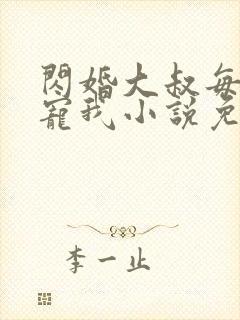 閃婚大叔每
寵我小說免
李一止